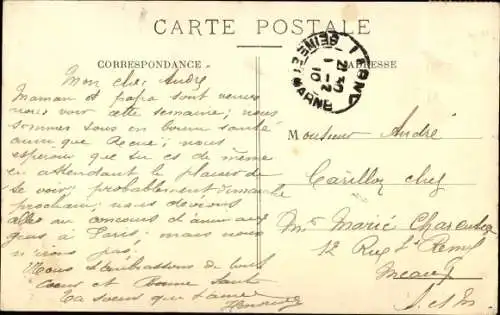 CARTE POSTALE
CORRESPONDANCE
ADRESSE
LESND
SEINE ET MARNE
Mon cher André
Maman et papa sont venus
nous voir cette semaine; nous
sommes tous en bonne santé
ainsi que René; nous
espérons que tu es de même
en attendant le plaisir de
te voir, probablement dimanche
prochain; nous devions
aller au concours d'animaux
gras à Paris; mais nous
n'irons pas.
Nous t'embrassons de tout
coeur et bonne santé
Ta soeur qui t'aime
Monsieur André
Carilloz chez
Mme Marié
12 Rue St Remy
Meaux
S. et M.